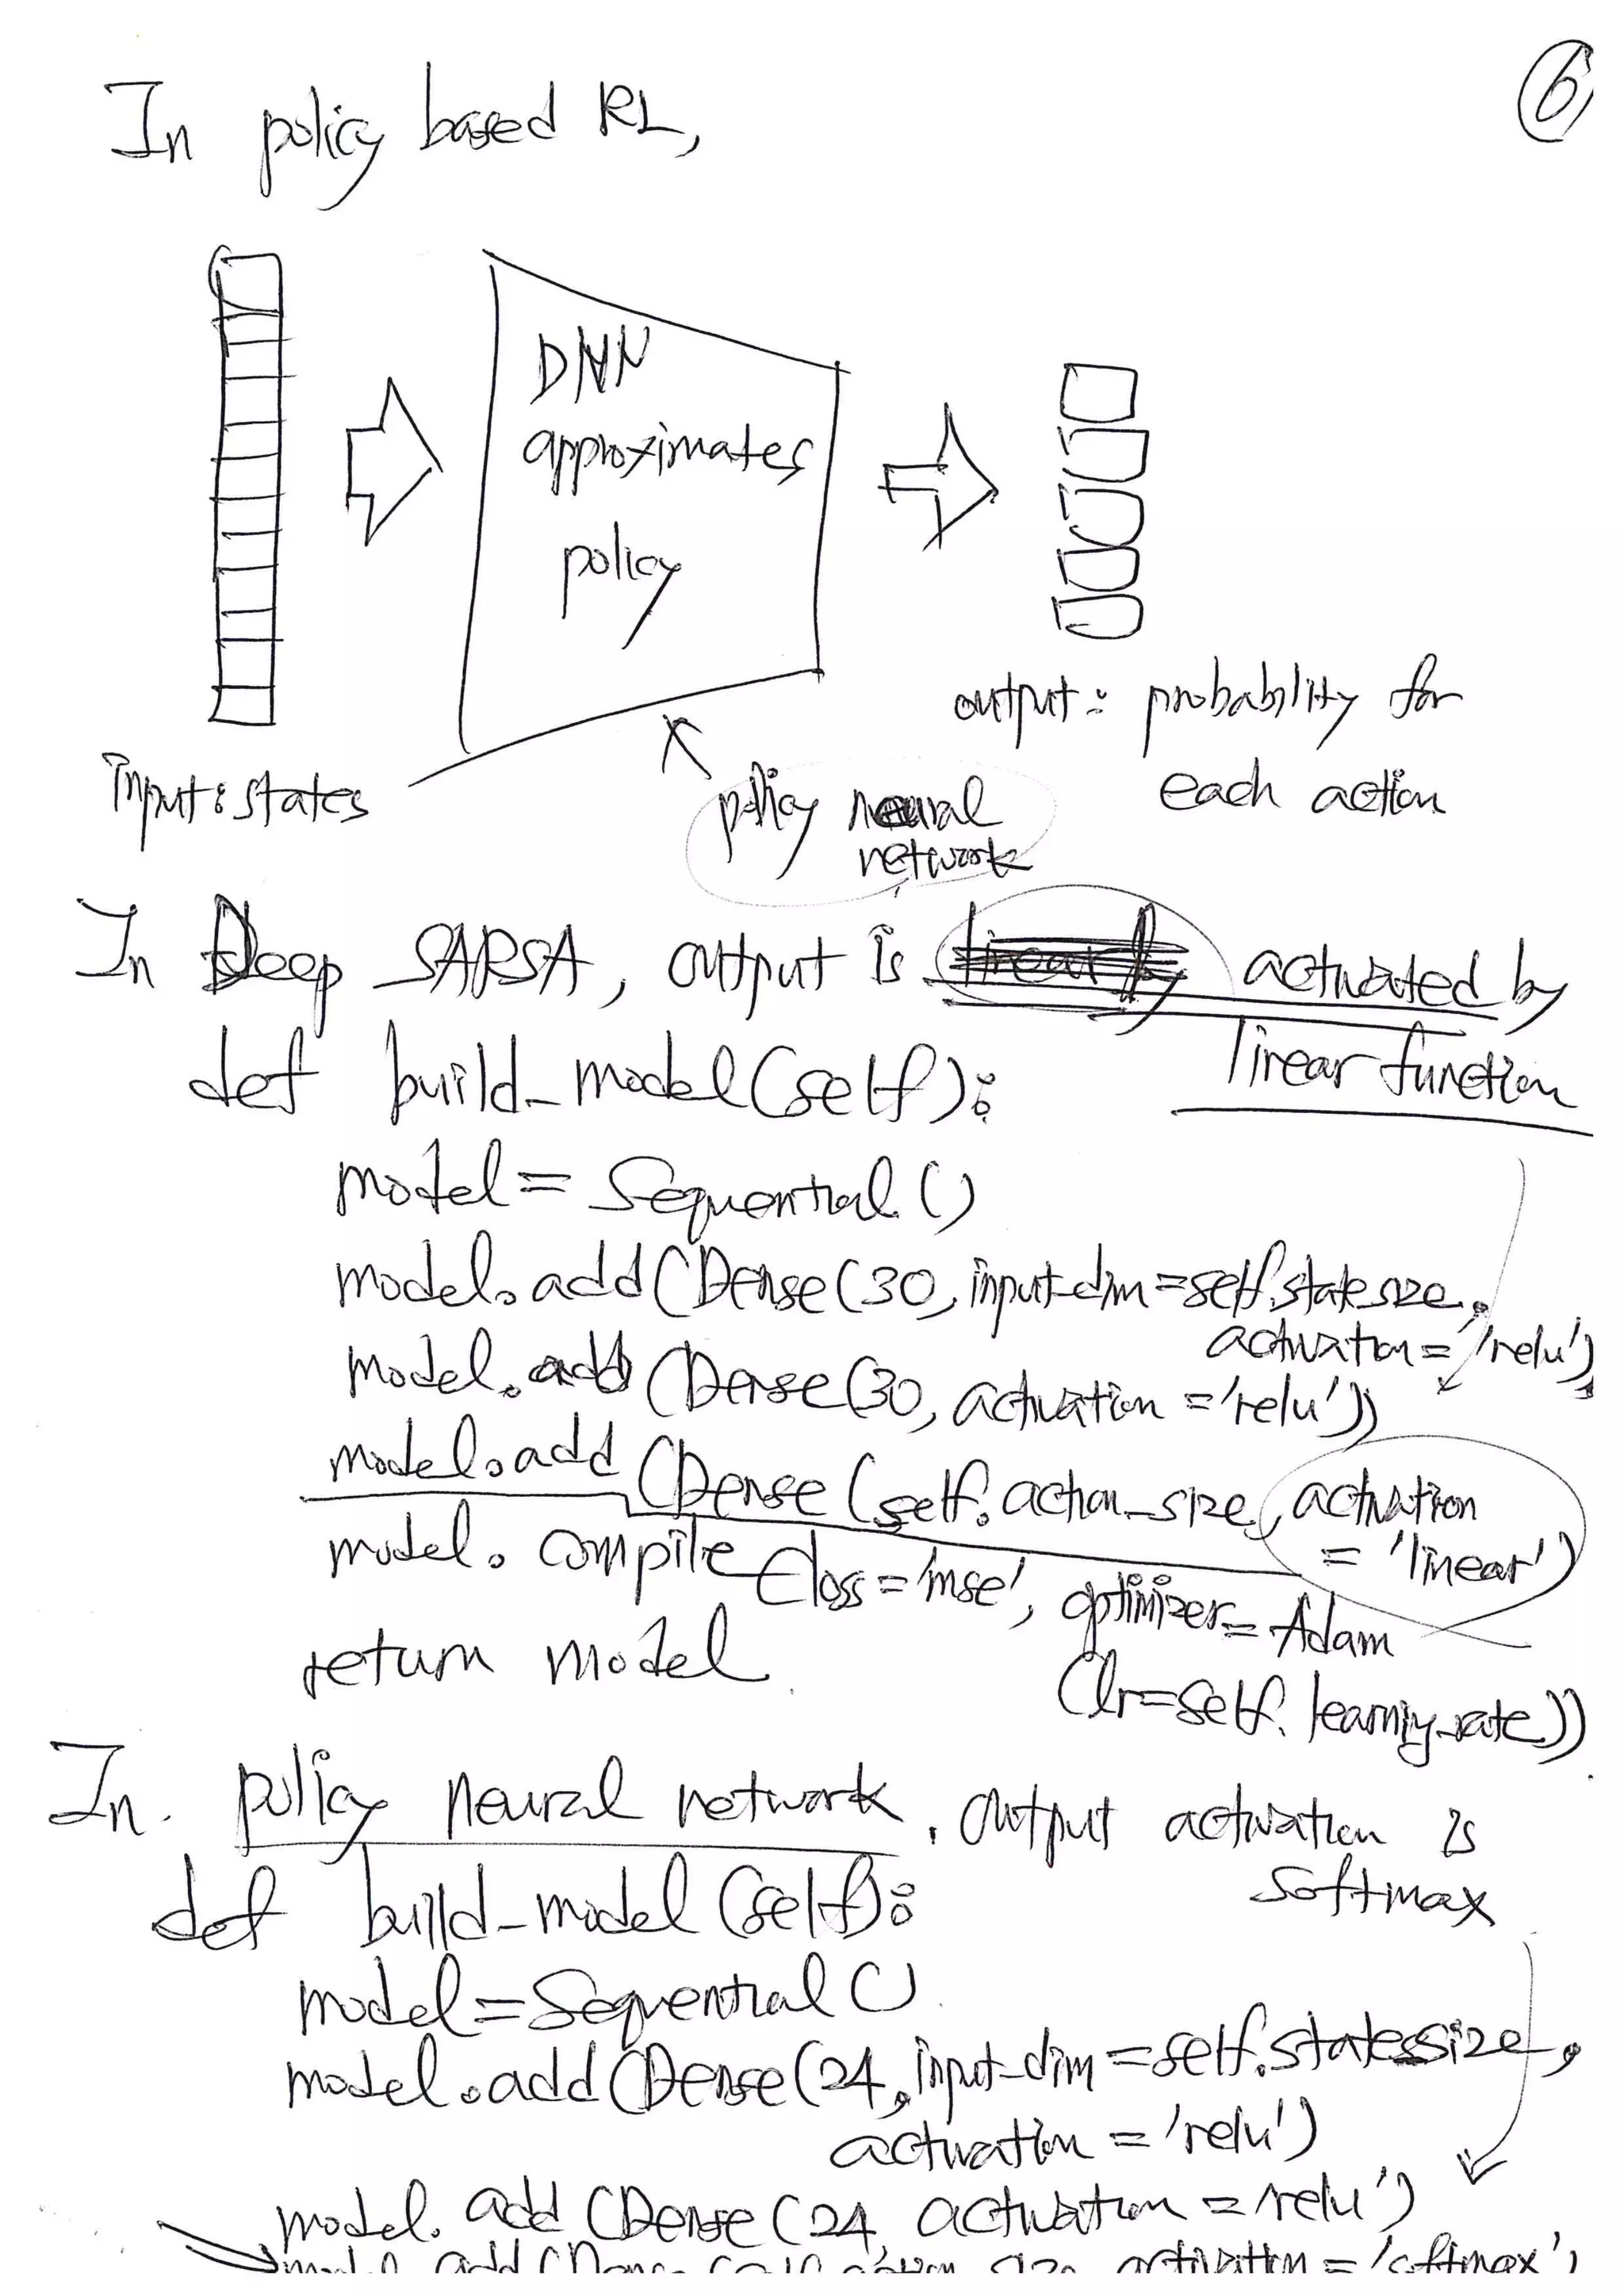 6
In policy based RL,
DNN
approximates
policy
input: states
output: probability for
each action
policy neural
network
In Deep SARSA, output is linearly actuated by
linear function
def build_model(self):
model = Sequential()
model.add(Dense(30, input_dim=self.state size,
activation='relu')
model.add(Dense(30, activation='relu'))
model.add(Dense(self.action_size, activation
= 'linear')
model.compile(loss='mse', optimizer=Adam
(lr=self.learning_rate))
return model
In. policy neural network, output activation is
softmax
def build_model(self):
model=Sequential()
model.add(Dense(24, input_dim=self.statessize,
activation='relu')
model.add(Dense(24, activation=relu')
model.add(Dense(self.action size, activation='softmax')